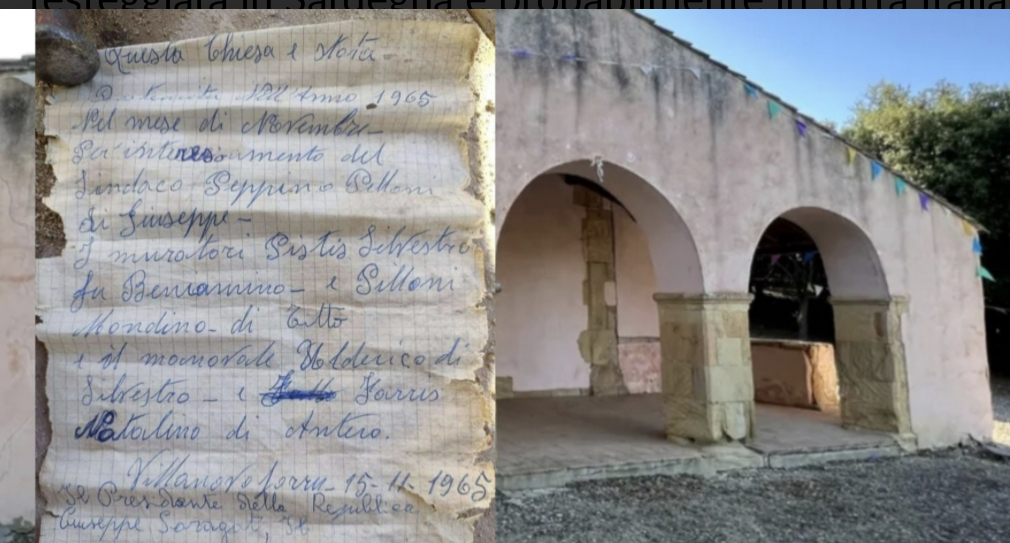 festeggiata in Sardegna e probabilmente in tutta Italia
Questa Chiesa e stata
Nell'Anno 1965
Nel mese di Novembre
Per interessamento del
Sindaco Peppino Pilloni
di Giuseppe-
I muratori Pistis Silvestro
fu Beniamino- e Pilloni
Mondino- di Titto
e il manovale Ulderico di
Silvestro - e Farris
Natalino di Antero.
Villanovaforru- 15-11-1965
Il Presidente della Republica
Giuseppe Saragat, Il